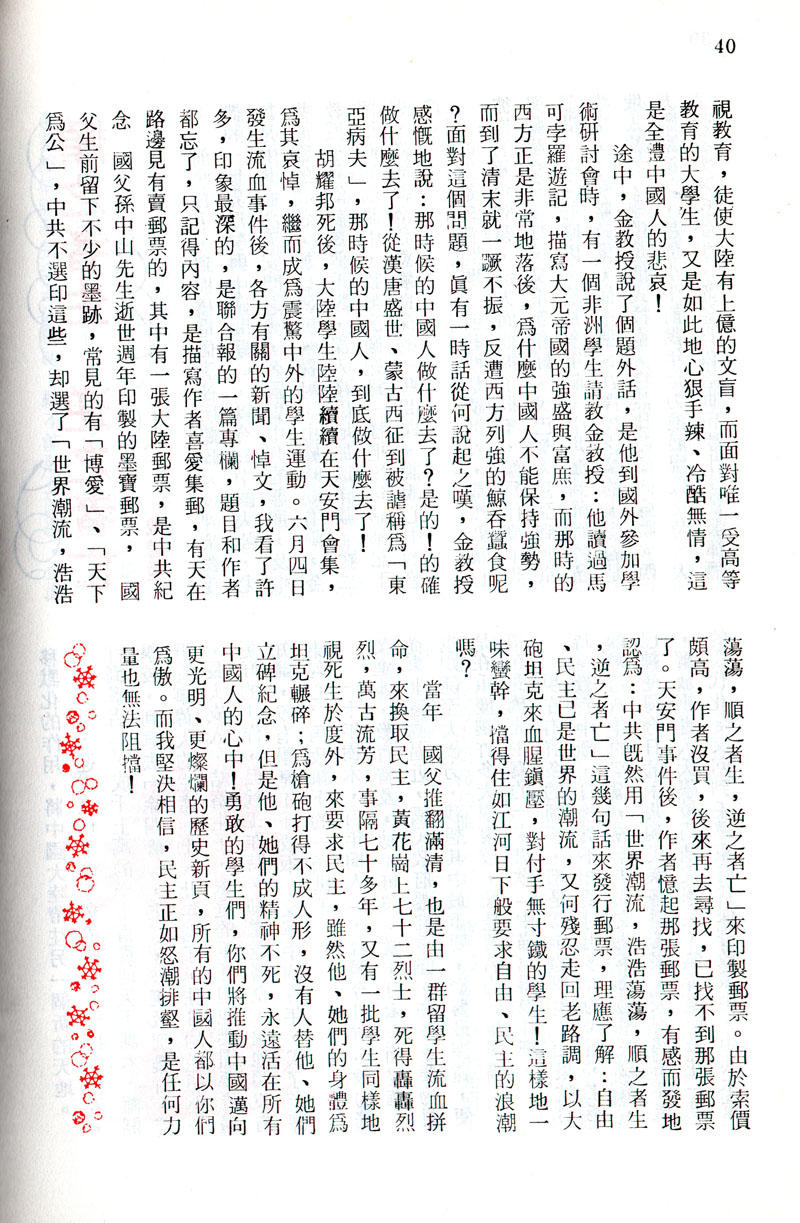 40
視教育，徒使大陸有上億的文盲，而面對唯一受高等
教育的大學生，又是如此地心狠手辣、冷酷無情，這
是全體中國人的悲哀！
途中，金教授說了個題外話，是他到國外參加學
術研討會時，有一個非洲學生請教金教授：他讀過馬
可孛羅遊記，描寫大元帝國的強盛與富庶，而那時的
西方正是非常地落後，爲什麼中國人不能保持強勢，
而到了清末就一蹶不振，反遭西方列強的鯨吞蠶食呢
？面對這個問題，眞有一時話從何說起之嘆，金教授
感慨地說：那時候的中國人做什麼去了？是的！的確
做什麼去了！從漢唐盛世、蒙古西征到被謔稱爲「東
亞病夫」，那時候的中國人，到底做什麼去了！
胡耀邦死後，大陸學生陸陸續續在天安門會集，
爲其哀悼，繼而成爲震驚中外的學生運動。六月四日
發生流血事件後，各方有關的新聞、悼文，我看了許
多，印象最深的，是聯合報的一篇專欄，題目和作者
都忘了，只記得內容，是描寫作者喜愛集郵，有天在
路邊見有賣郵票的，其中有一張大陸郵票，是中共紀
念　國父孫中山先生逝世週年印製的墨寶郵票，　國
父生前留下不少的墨跡，常見的有「博愛」、「天下
爲公」，中共不選印這些，却選了「世界潮流，浩浩
蕩蕩，順之者生，逆之者亡」來印製郵票。由於索價
頗高，作者沒買，後來再去尋找，已找不到那張郵票
了。天安門事件後，作者憶起那張郵票，有感而發地
認爲：中共旣然用「世界潮流，浩浩蕩蕩，順之者生
，逆之者亡」這幾句話來發行郵票，理應了解：自由
、民主已是世界的潮流，又何殘忍走回老路調，以大
砲坦克來血腥鎭壓，對付手無寸鐵的學生！這樣地一
味蠻幹，擋得住如江河日下般要求自由、民主的浪潮
嗎？
當年　國父推翻滿清，也是由一群留學生流血拼
命，來換取民主，黃花崗上七十二烈士，死得轟轟烈
烈，萬古流芳，事隔七十多年，又有一批學生同樣地
視死生於度外，來要求民主，雖然他、她們的身體爲
坦克輾碎；爲槍砲打得不成人形，沒有人替他、她們
立碑紀念，但是他、她們的精神不死，永遠活在所有
中國人的心中！勇敢的學生們，你們將推動中國邁向
更光明、更燦爛的歷史新頁，所有的中國人都以你們
爲傲。而我堅決相信，民主正如怒潮排壑，是任何力
量也無法阻擋！